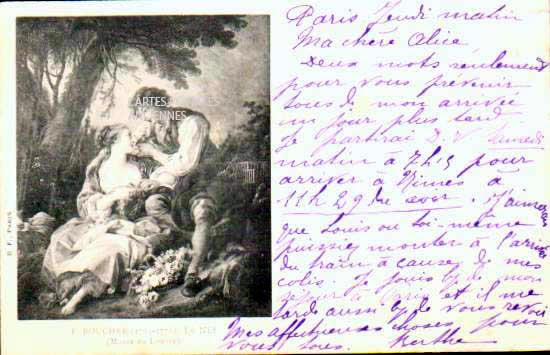 CARTES POSTALES
ANCIENNES
B. F., PARIS
F. BOUCHER LE NID
(MUSÉE DU LOUVRE)
Paris Jeudi matin
Ma chère Alice
Deux mots seulement
pour vous prévenir
tous de mon arrivée
un jour plus tard
Je partirai D. V. Samedi
matin à 7h15 pour
arriver à Nimes à
11h 29 du soir. J'aimerais
que Louis ou toi-même
puissiez monter à l'arrivée
du train à cause de mes
colis. Je jouis de mon
séjour à Paris et il me
tarde aussi de vous revoir
Mes affectueuses choses pour
vous tous. Berthe